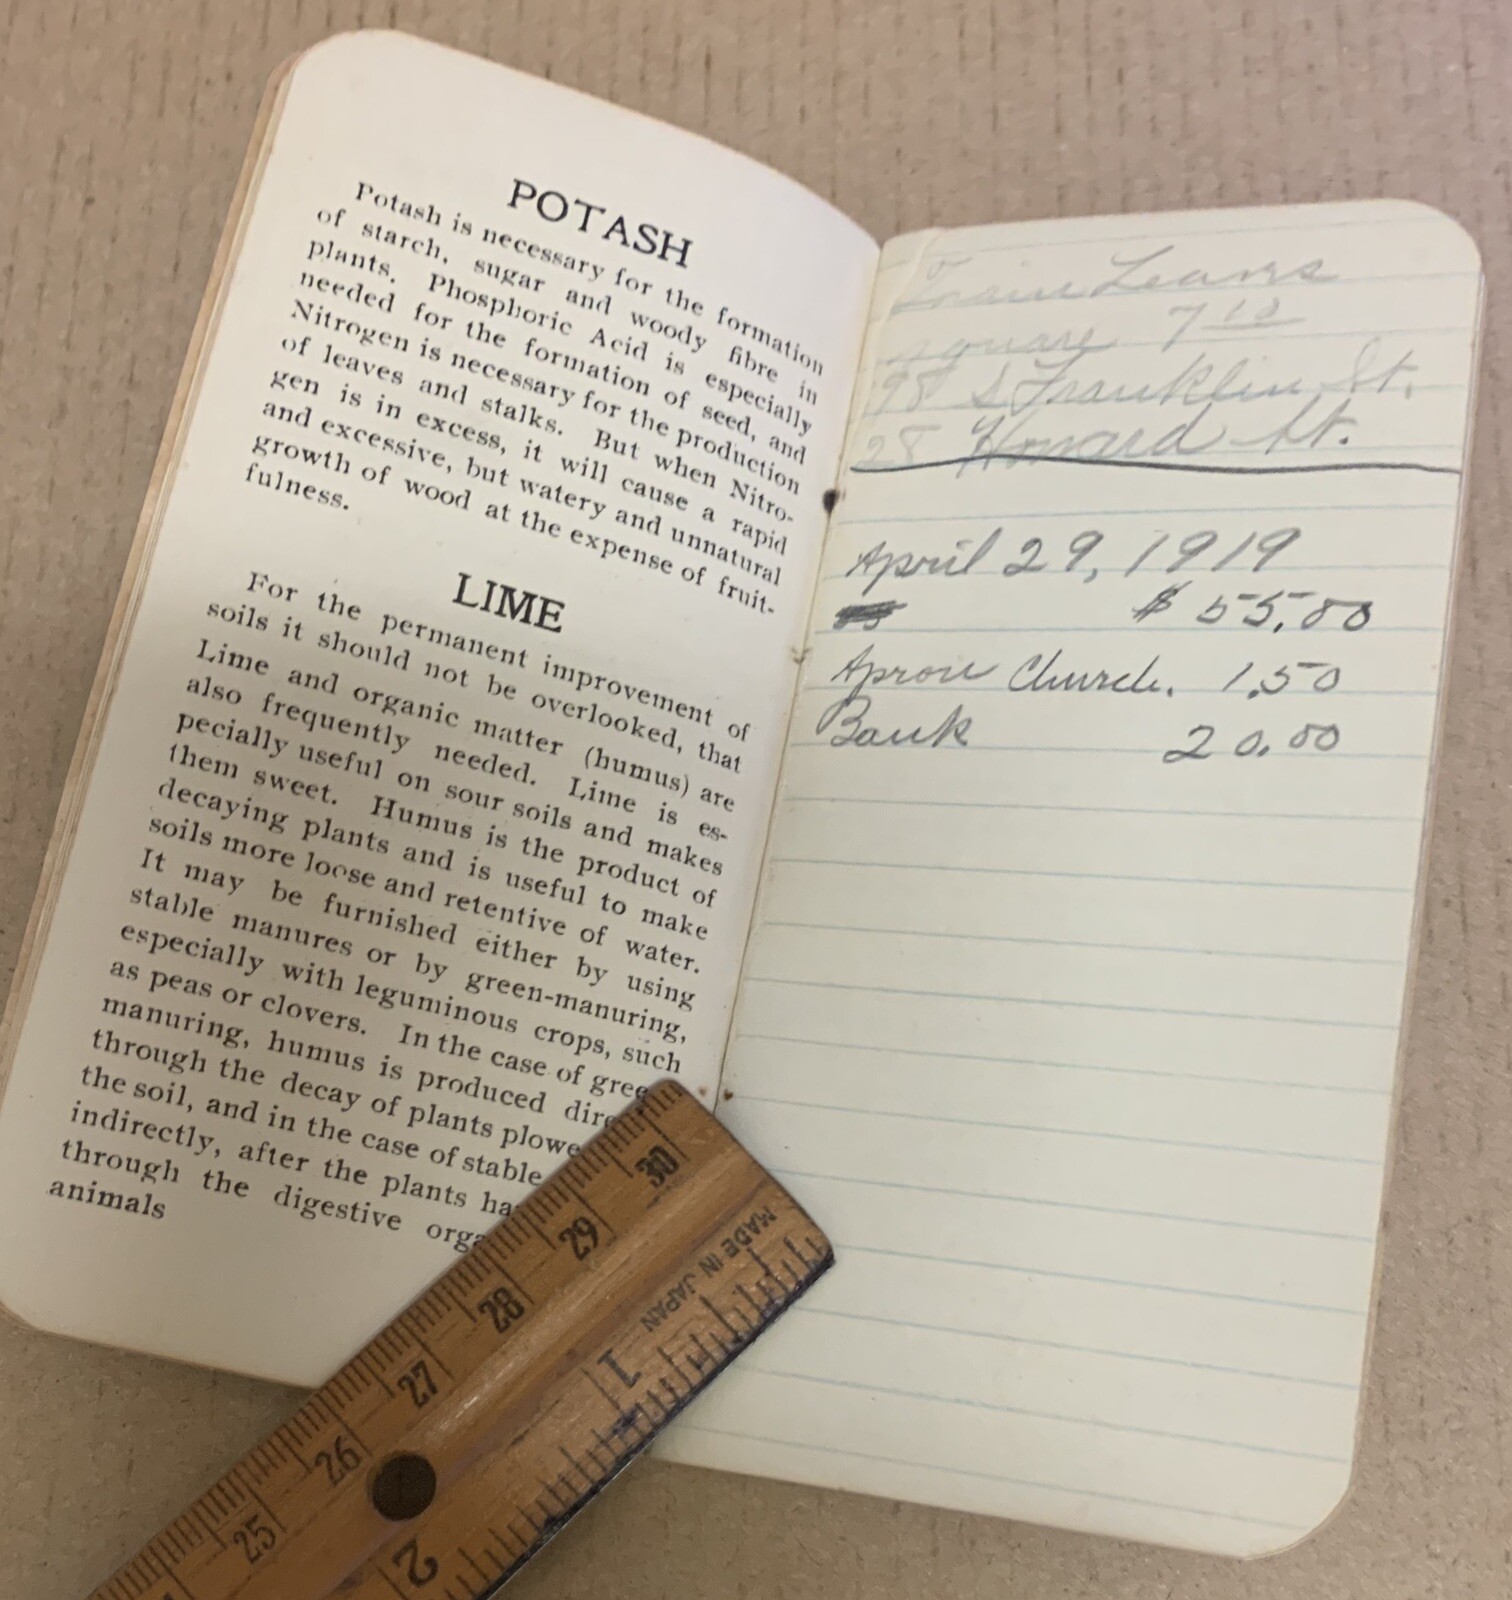 POTASH
Potash is necessary for the formation
of starch, sugar and woody fibre in
plants. Phosphoric Acid is especially
needed for the formation of seed, and
Nitrogen is necessary for the production
of leaves and stalks. But when Nitro-
gen is in excess, it will cause a rapid
and excessive, but watery and unnatural
growth of wood at the expense of fruit-
fulness.
LIME
For the permanent improvement of
soils it should not be overlooked, that
Lime and organic matter (humus) are
also frequently needed. Lime is es-
pecially useful on sour soils and makes
them sweet. Humus is the product of
decaying plants and is useful to make
soils more loose and retentive of water.
It may be furnished either by using
stable manures or by green-manuring,
especially with leguminous crops, such
as peas or clovers. In the case of gree
manuring, humus is produced dire
through the decay of plants plowe
the soil, and in the case of stable
indirectly, after the plants ha
through the digestive orga
animals
Train Leaves
square 7 10
98 S Franklin St.
28 Howard St.
April 29, 1919
$ 55.00
Apron Church. 1.50
Bank 20.00
30
29
28
27
26
25
MADE IN JAPAN
1
2